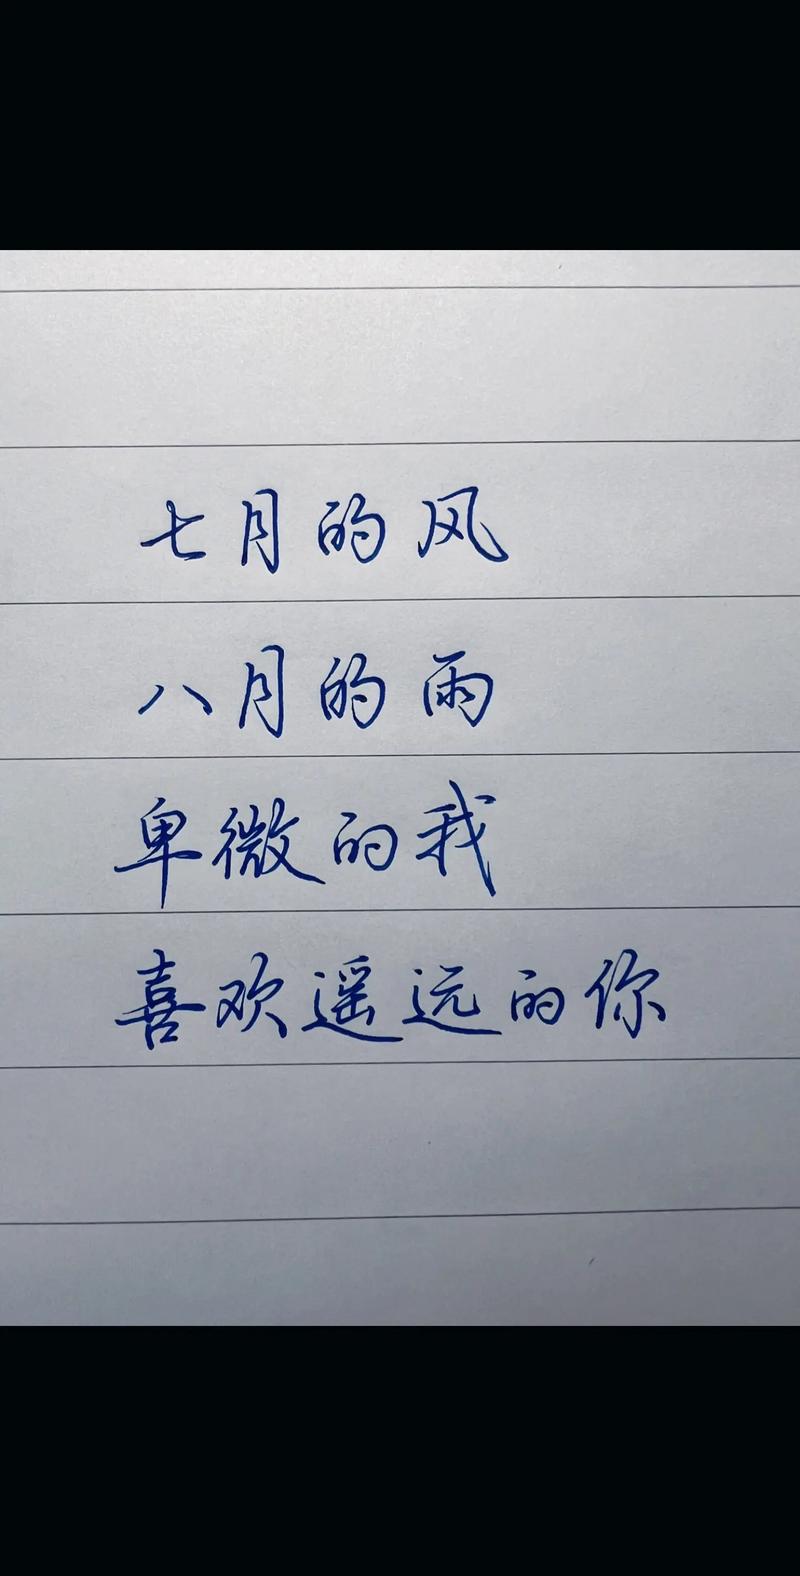 七月的风
八月的雨
卑微的我
喜欢遥远的你